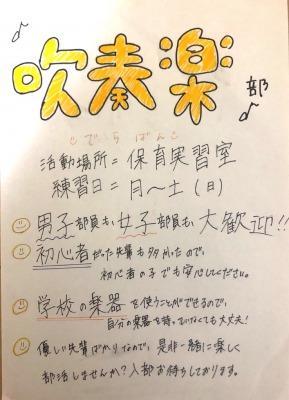 吹奏楽部
こでらばんこ
活動場所 = 保育実習室
練習日 = 月〜土(日)
男子部員も、女子部員も、大歓迎!!
初心者だった先輩も多かったので、
初心者の子でも安心してください。
学校の楽器を使うことができるので、
自分の楽器を持っていなくても大丈夫!
優しい先輩ばかりなので、是非一緒に楽しく
部活しませんか?入部お待ちしております。